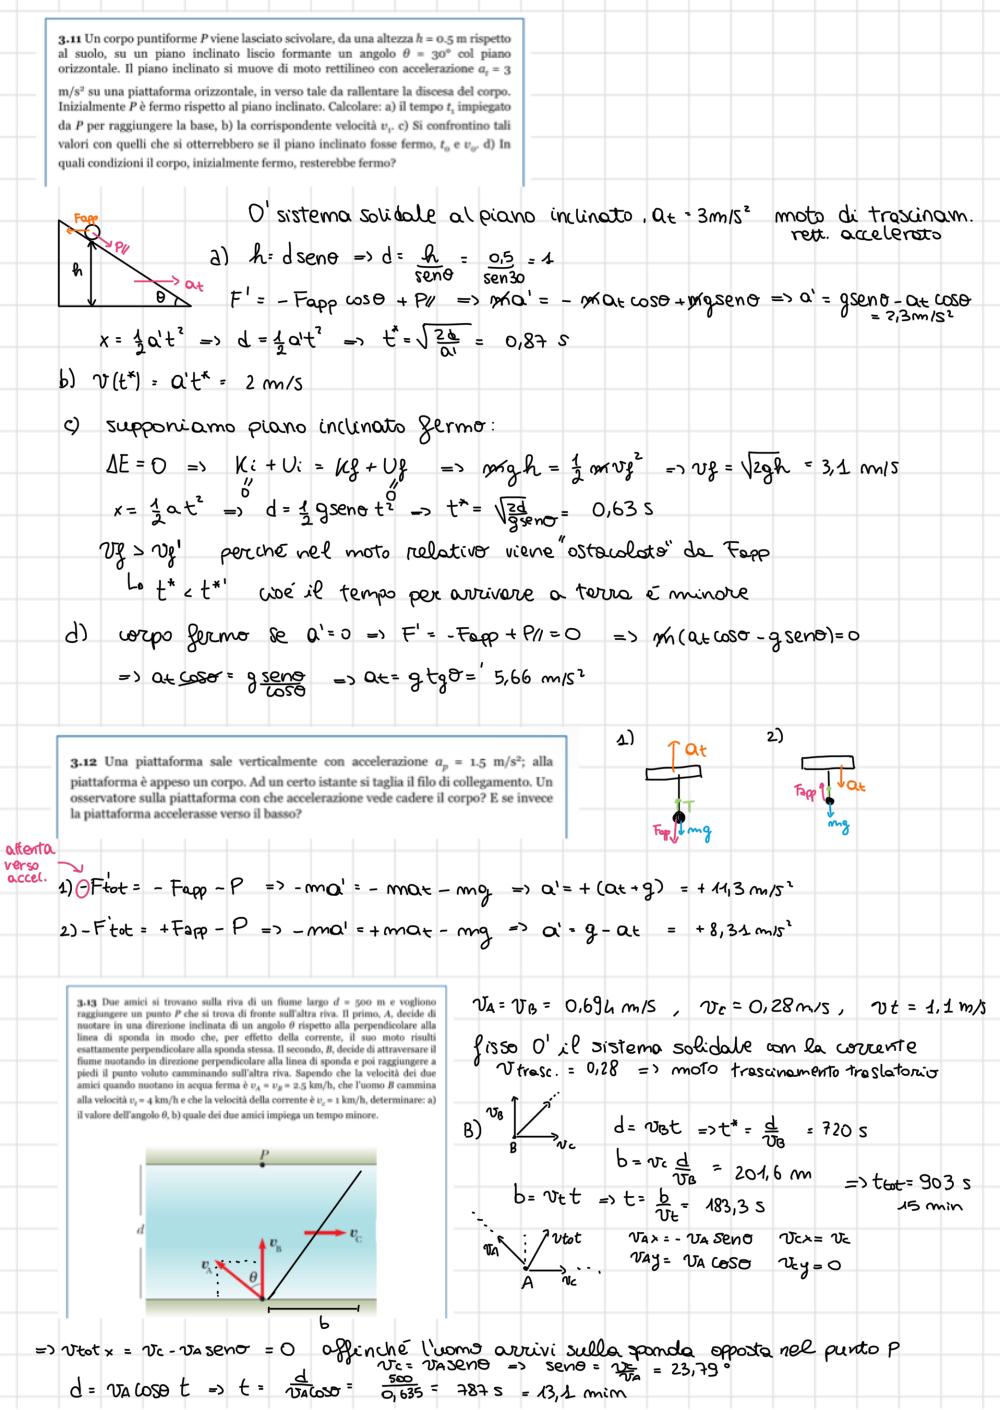 3.11 Un corpo puntiforme P viene lasciato scivolare, da una altezza h = 0.5 m rispetto
al suolo, su un piano inclinato liscio formante un angolo θ = 30° col piano
orizzontale. Il piano inclinato si muove di moto rettilineo con accelerazione aₜ = 3
m/s² su una piattaforma orizzontale, in verso tale da rallentare la discesa del corpo.
Inizialmente P è fermo rispetto al piano inclinato. Calcolare: a) il tempo t₁ impiegato
da P per raggiungere la base, b) la corrispondente velocità v₁. c) Si confrontino tali
valori con quelli che si otterrebbero se il piano inclinato fosse fermo, t₀ e v₀. d) In
quali condizioni il corpo, inizialmente fermo, resterebbe fermo?
Fapp
P//
h
θ
at
O' sistema solidale al piano inclinato, at = 3m/s² moto di trascinam.
rett. accelerato
a) h = d senθ => d = h/senθ = 0,5/sen30 = 1
F' = - Fapp cosθ + P// => ma' = - mat cosθ + mgsenθ => a' = gsenθ - at cosθ
= 2,3m/s²
x = 1/2 a't² => d = 1/2 a't² => t* = √2d/a' = 0,87 s
b) v(t*) = a't* = 2 m/s
c) supponiamo piano inclinato fermo:
ΔE = 0 => Ki + Ui = Kf + Uf => mgh = 1/2 mvf² => vf = √2gh = 3,1 m/s
0 0
x = 1/2 at² => d = 1/2 gsenθ t² => t* = √2d/gsenθ = 0,63 s
vf > vf' perché nel moto relativo viene "ostacolato" da Fapp
Lo t* < t*' cioé il tempo per arrivare a terra é minore
d) corpo fermo se a' = 0 => F' = - Fapp + P// = 0 => m(at cosθ - g senθ) = 0
=> at cosθ = g senθ/cosθ => at = g tgθ = 5,66 m/s²
3.12 Una piattaforma sale verticalmente con accelerazione aₚ = 1.5 m/s²; alla
piattaforma è appeso un corpo. Ad un certo istante si taglia il filo di collegamento. Un
osservatore sulla piattaforma con che accelerazione vede cadere il corpo? E se invece
la piattaforma accelerasse verso il basso?
1)
at
T
Fapp
mg
2)
Fapp
at
mg
attenta
verso
accel.
1) -F'tot = - Fapp - P => -ma' = - mat - mg => a' = + (at + g) = + 11,3 m/s²
2) -F'tot = +Fapp - P => -ma' = +mat - mg => a' = g - at = +8,31 m/s²
3.13 Due amici si trovano sulla riva di un fiume largo d = 500 m e vogliono
raggiungere un punto P che si trova di fronte sull'altra riva. Il primo, A, decide di
nuotare in una direzione inclinata di un angolo θ rispetto alla perpendicolare alla
linea di sponda in modo che, per effetto della corrente, il suo moto risulti
esattamente perpendicolare alla sponda stessa. Il secondo, B, decide di attraversare il
fiume nuotando in direzione perpendicolare alla linea di sponda e poi raggiungere a
piedi il punto voluto camminando sull'altra riva. Sapendo che la velocità dei due
amici quando nuotano in acqua ferma è vA = vB = 2.5 km/h, che l'uomo B cammina
alla velocità vₜ = 4 km/h e che la velocità della corrente è vc = 1 km/h, determinare: a)
il valore dell'angolo θ, b) quale dei due amici impiega un tempo minore.
P
d
vA
vB
vC
θ
b
vA = vB = 0,694 m/s , vc = 0,28m/s , vt = 1,1 m/s
fisso O' il sistema solidale con la corrente
v trasc. = 0,28 => moto trascinamento traslatorio
B) vB
B
vc
d = vBt => t* = d/vB = 720 s
b = vc d/vB = 201,6 m
b = vt t => t = b/vt = 183,3 s
=> ttot = 903 s
15 min
vA
vtot
A
vc
vAx = - vA senθ vcx = vc
vAy = vA cosθ vcy = 0
=> vtot x = vc - vA senθ = 0 affinché l'uomo arrivi sulla sponda opposta nel punto P
vc = vA senθ => senθ = vc/vA = 23,79°
d = vA cosθ t => t = d/vAcosθ = 500/0,635 = 787 s = 13,1 min